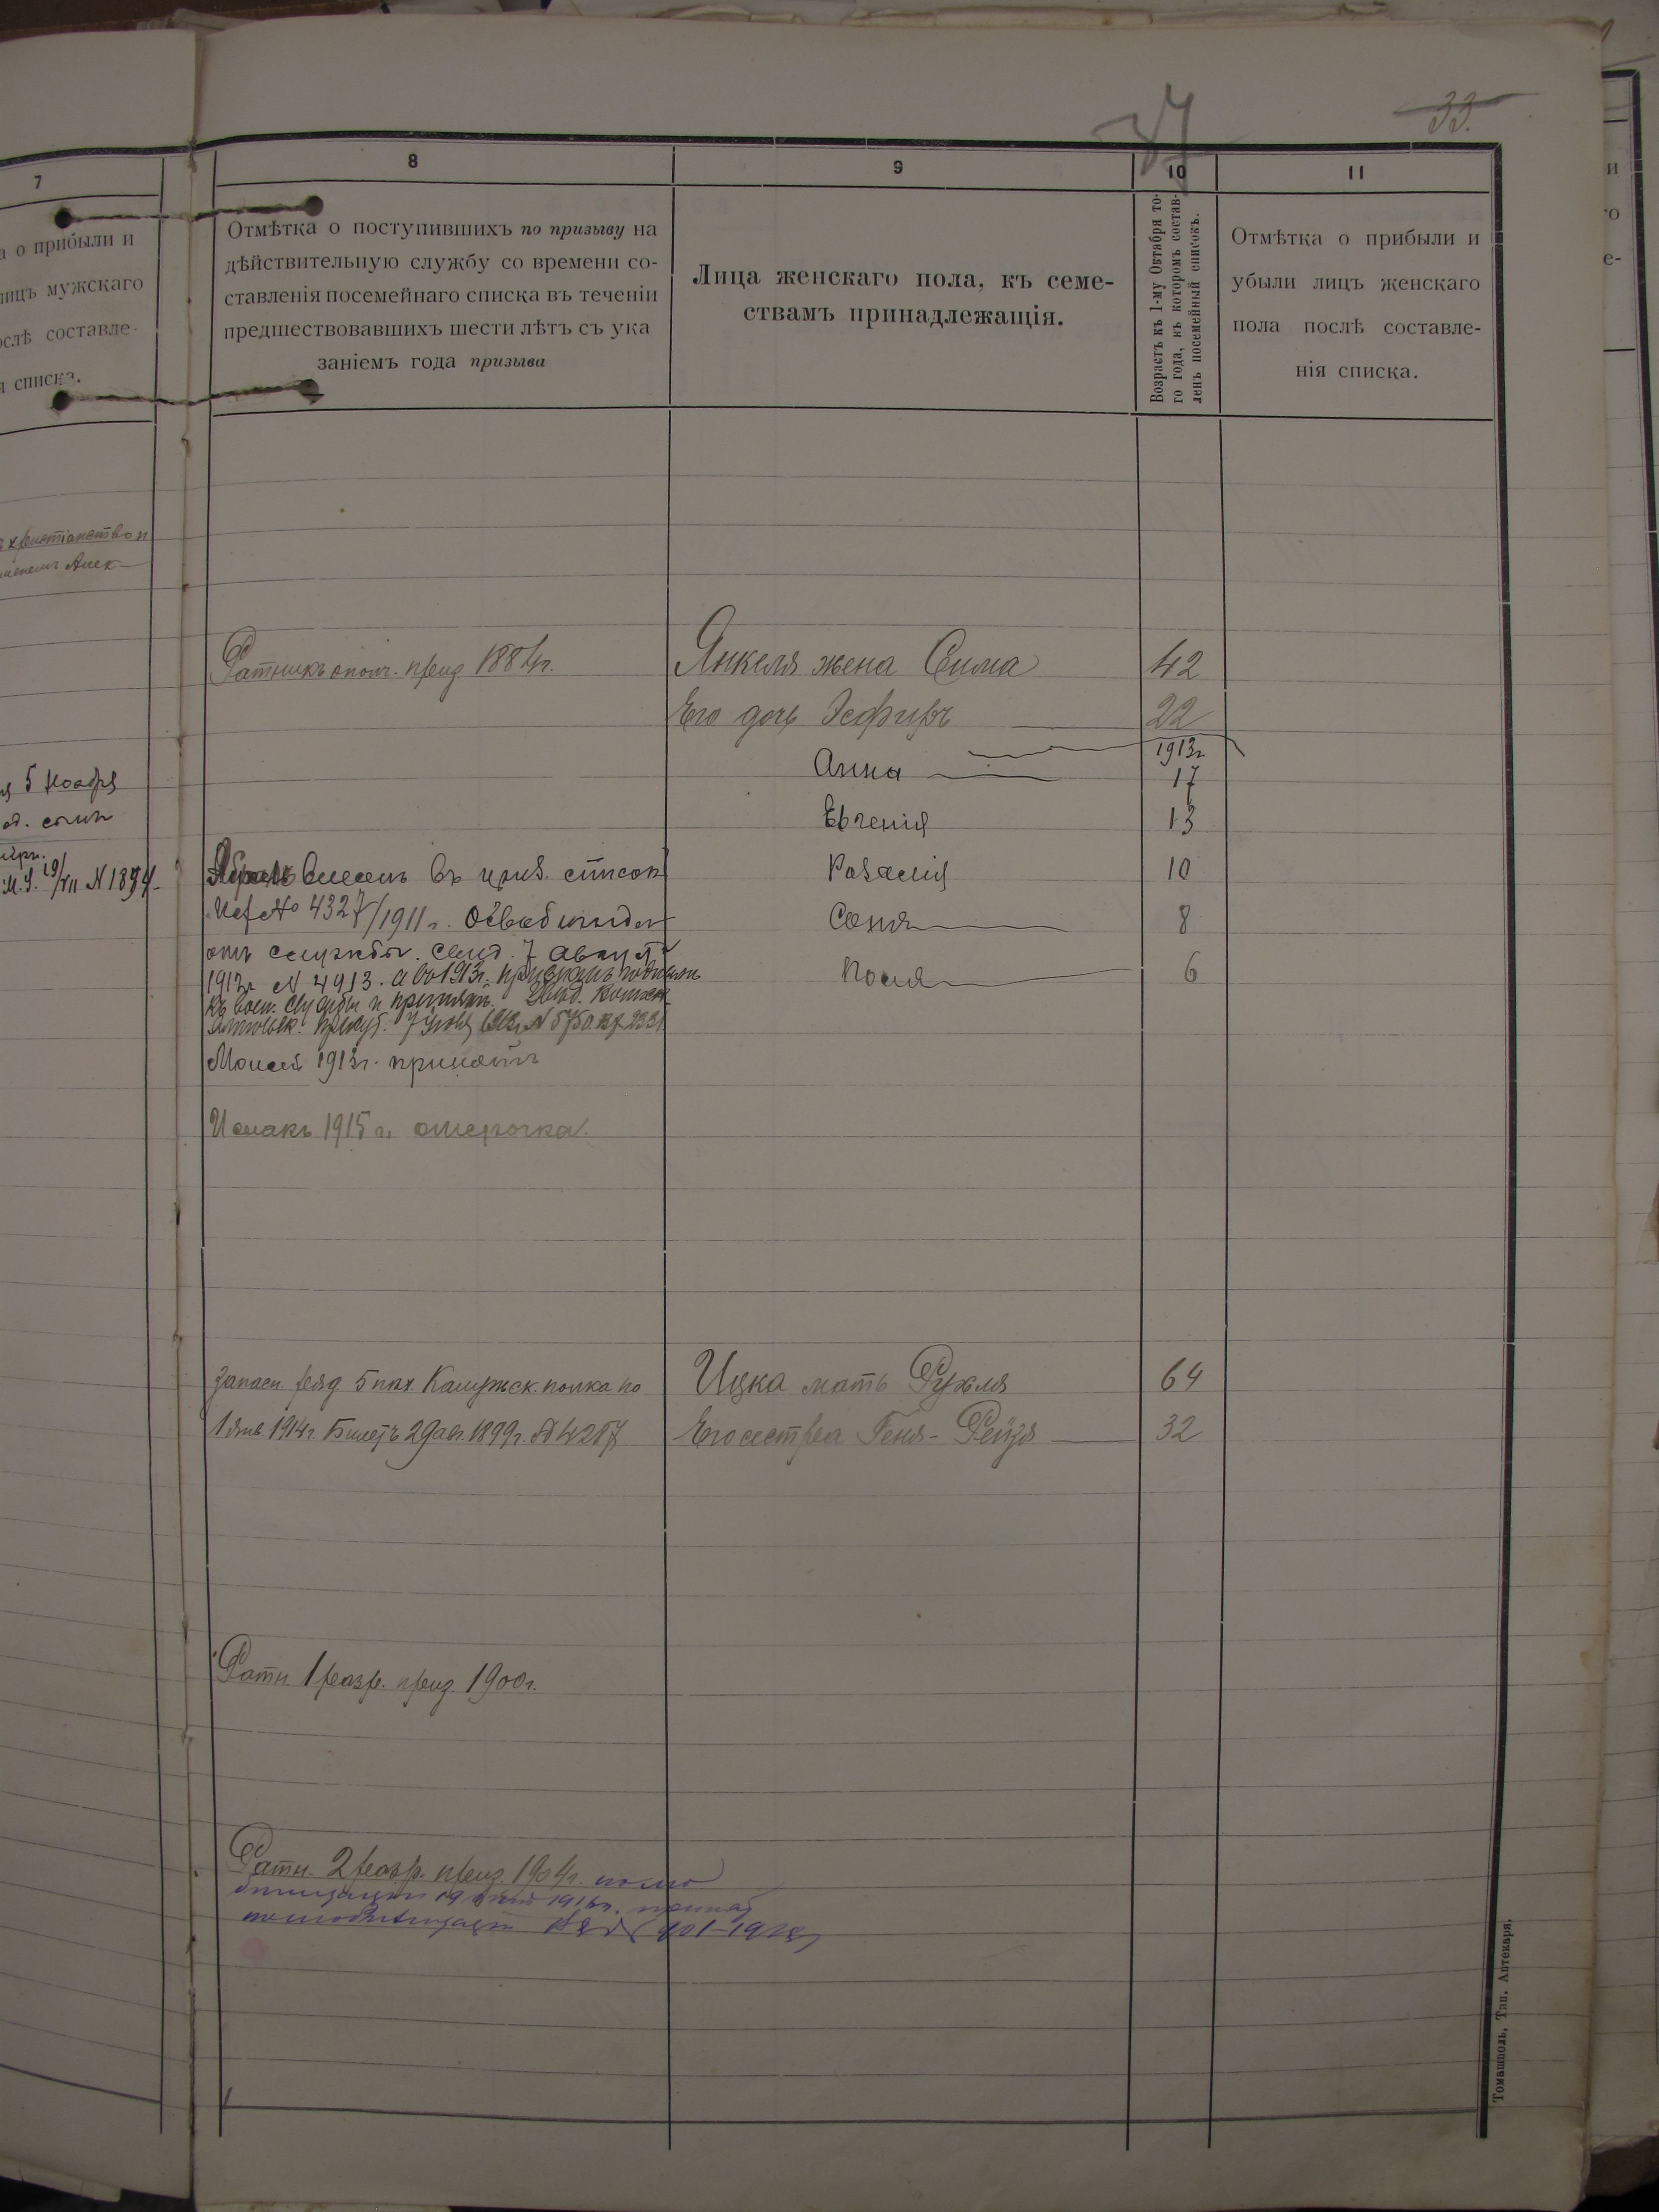 37
33.
7
8
9
10
11
а о прибыли и
лицъ мужскаго
ослѣ составле-
я списка.
Отмѣтка о поступившихъ по призыву на
дѣйствительную службу со времени со-
ставленія посемейнаго списка въ теченіи
предшествовавшихъ шести лѣтъ съ ука
заніемъ года призыва
Лица женскаго пола, къ семе-
ствамъ принадлежащія.
Возрастъ къ 1-му Октября то-
го года, къ которомъ состав-
ленъ посемейный списокъ.
Отмѣтка о прибыли и
убыли лицъ женскаго
пола послѣ составле-
нія списка.
христіанство и
именемъ Алек-
Ратникъ ополч. приз 1884г.
Янкеля жена Сима 42
Его дочь Эсфирь 22
1913г.
Анна 17
Евгенія 13
Розалія 10
Соня 8
Поля 6
5 Ноября
19/VII N 1894-
внесенъ въ приз. список
№ 4327/1911 г.
отъ службы. свид. 7 августа
1912г N 4913. а въ 1913г. призванъ
къ воен. службы и принятъ.
N 5750.
Моисей 1913г. принятъ
Исаакъ 1915 г. отсрочка.
Запасн. ряд 5 пѣх. Калужск. полка по
1 янв 1914г. Билетъ 29 авг. 1899г. № 4267
Ицка мать Рухля 64
Его сестра Геня-Рейзя 32
Ратн. 1 разр. приз. 1900г.
Ратн. 2 разр. приз. 1904г.
Томашполь, Тип. Аптекаря.